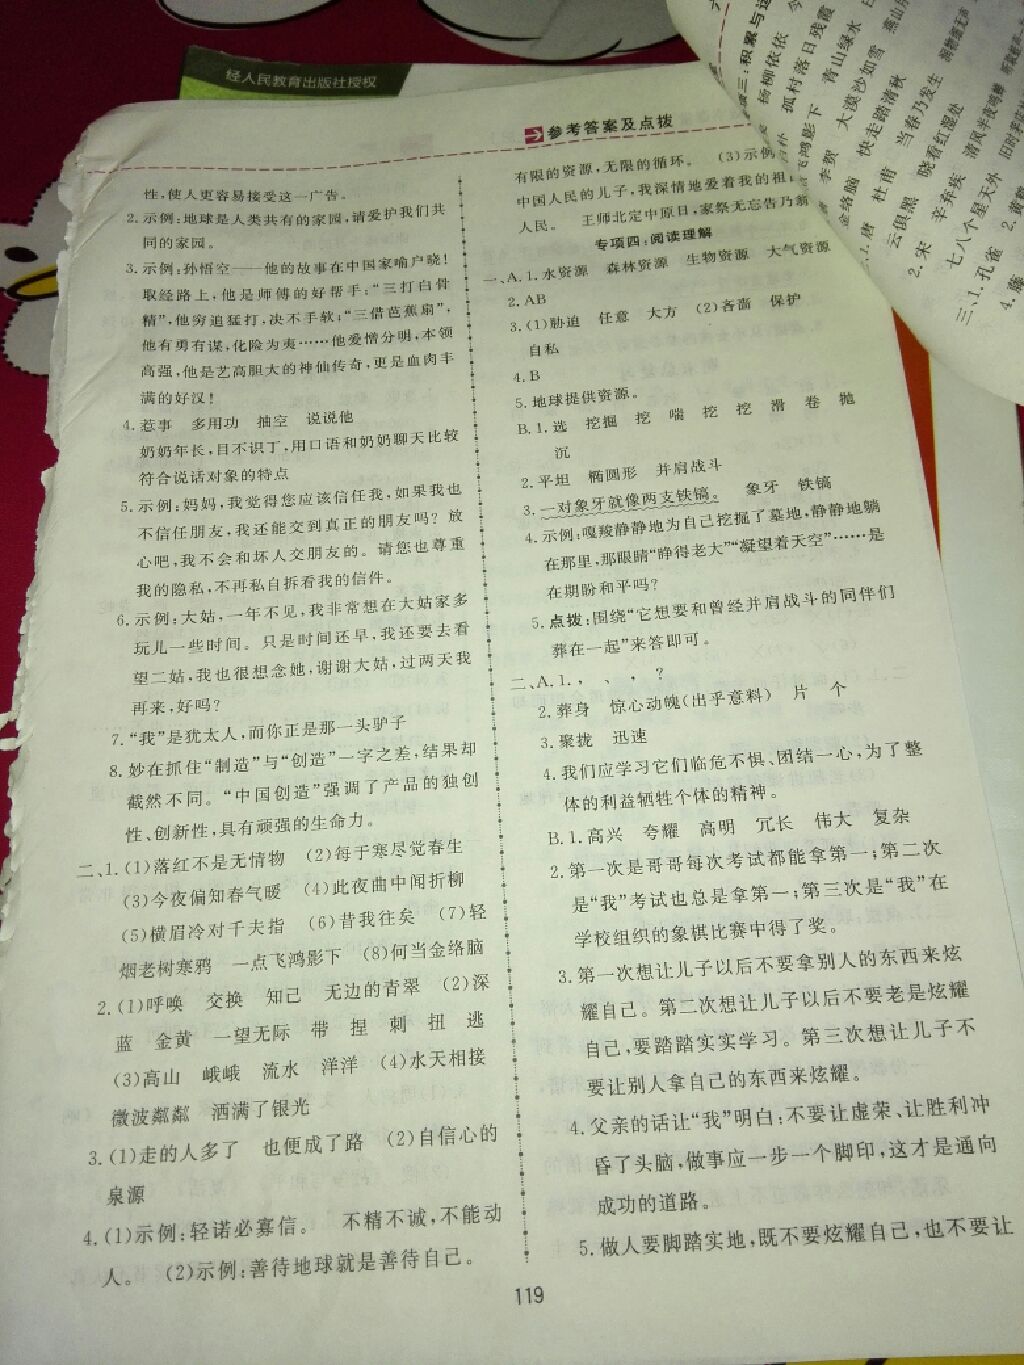 经人民教育出版社授权
参考答案及点拨
性,使人更容易接受这一广告。
2.示例:地球是人类共有的家园,请爱护我们共
同的家园。
3.示例:孙悟空——他的故事在中国家喻户晓!
取经路上,他是师傅的好帮手:“三打白骨
精”,他穷追猛打,决不手软;“三借芭蕉扇”,
他有勇有谋,化险为夷……他爱憎分明,本领
高强,他是艺高胆大的神仙传奇,更是血肉丰
满的好汉!
4.惹事 多用功 抽空 说说他
奶奶年长,目不识丁,用口语和奶奶聊天比较
符合说话对象的特点
5.示例:妈妈,我觉得您应该信任我,如果我也
不信任朋友,我还能交到真正的朋友吗?放
心吧,我不会和坏人交朋友的。请您也尊重
我的隐私,不再私自拆看我的信件。
6.示例:大姑,一年不见,我非常想在大姑家多
玩儿一些时间。只是时间还早,我还要去看
望二姑,我也很想念她,谢谢大姑,过两天我
再来,好吗?
7.“我”是犹太人,而你正是那一头驴子
8.妙在抓住“制造”与“创造”一字之差,结果却
截然不同。“中国创造”强调了产品的独创
性、创新性,具有顽强的生命力。
二、1.(1)落红不是无情物 (2)每于寒尽觉春生
(3)今夜偏知春气暖 (4)此夜曲中闻折柳
(5)横眉冷对千夫指 (6)昔我往矣 (7)轻
烟老树寒鸦 一点飞鸿影下 (8)何当金络脑
2.(1)呼唤 交换 知己 无边的青翠 (2)深
蓝 金黄 一望无际 带 捏 刺 扭 逃
(3)高山 峨峨 流水 洋洋 (4)水天相接
微波粼粼 洒满了银光
3.(1)走的人多了 也便成了路 (2)自信心的
泉源
4.(1)示例:轻诺必寡信。 不精不诚,不能动
人。 (2)示例:善待地球就是善待自己。
有限的资源,无限的循环。 (3)示例
中国人民的儿子,我深情地爱着我的祖
人民。 王师北定中原日,家祭无忘告乃翁
专项四:阅读理解
一、A.1.水资源 森林资源 生物资源 大气资源
2.AB
3.(1)胁迫 任意 大方 (2)吝啬 保护
自私
4.B
5.地球提供资源。
B.1.选 挖掘 挖 喘 挖 挖 滑 卷 抛
沉
2.平坦 椭圆形 并肩战斗
3.一对象牙就像两支铁镐。 象牙 铁镐
4.示例:嘎羧静静地为自己挖掘了墓地,静静地躺
在那里,那眼睛“睁得老大”“凝望着天空”……是
在期盼和平吗?
5.点拨:围绕“它想要和曾经并肩战斗的同伴们
葬在一起”来答即可。
二、A.1., 、 , ?
2.葬身 惊心动魄(出乎意料) 片 个
3.聚拢 迅速
4.我们应学习它们临危不惧、团结一心,为了整
体的利益牺牲个体的精神。
B.1.高兴 夸耀 高明 冗长 伟大 复杂
2.第一次是哥哥每次考试都能拿第一;第二次
是“我”考试也总是拿第一;第三次是“我”在
学校组织的象棋比赛中得了奖。
3.第一次想让儿子以后不要拿别人的东西来炫
耀自己。第二次想让儿子以后不要老是炫耀
自己,要踏踏实实学习。第三次想让儿子不
要让别人拿自己的东西来炫耀。
4.父亲的话让“我”明白:不要让虚荣、让胜利冲
昏了头脑,做事应一步一个脚印,这才是通向
成功的道路。
5.做人要脚踏实地,既不要炫耀自己,也不要让
119
三:积累与运
杨柳依依 今
孤村落日残霞
飞鸿影下 青山绿水
李贺 大漠沙如雪 燕山
金络脑 快走踏清秋
1.唐 杜甫 当春乃发生
云俱黑 晓看红湿处
2.宋 辛弃疾 清风半夜鸣蝉
七八个星天外 旧时茅店
三、1.孔雀 2.黄
4.藤